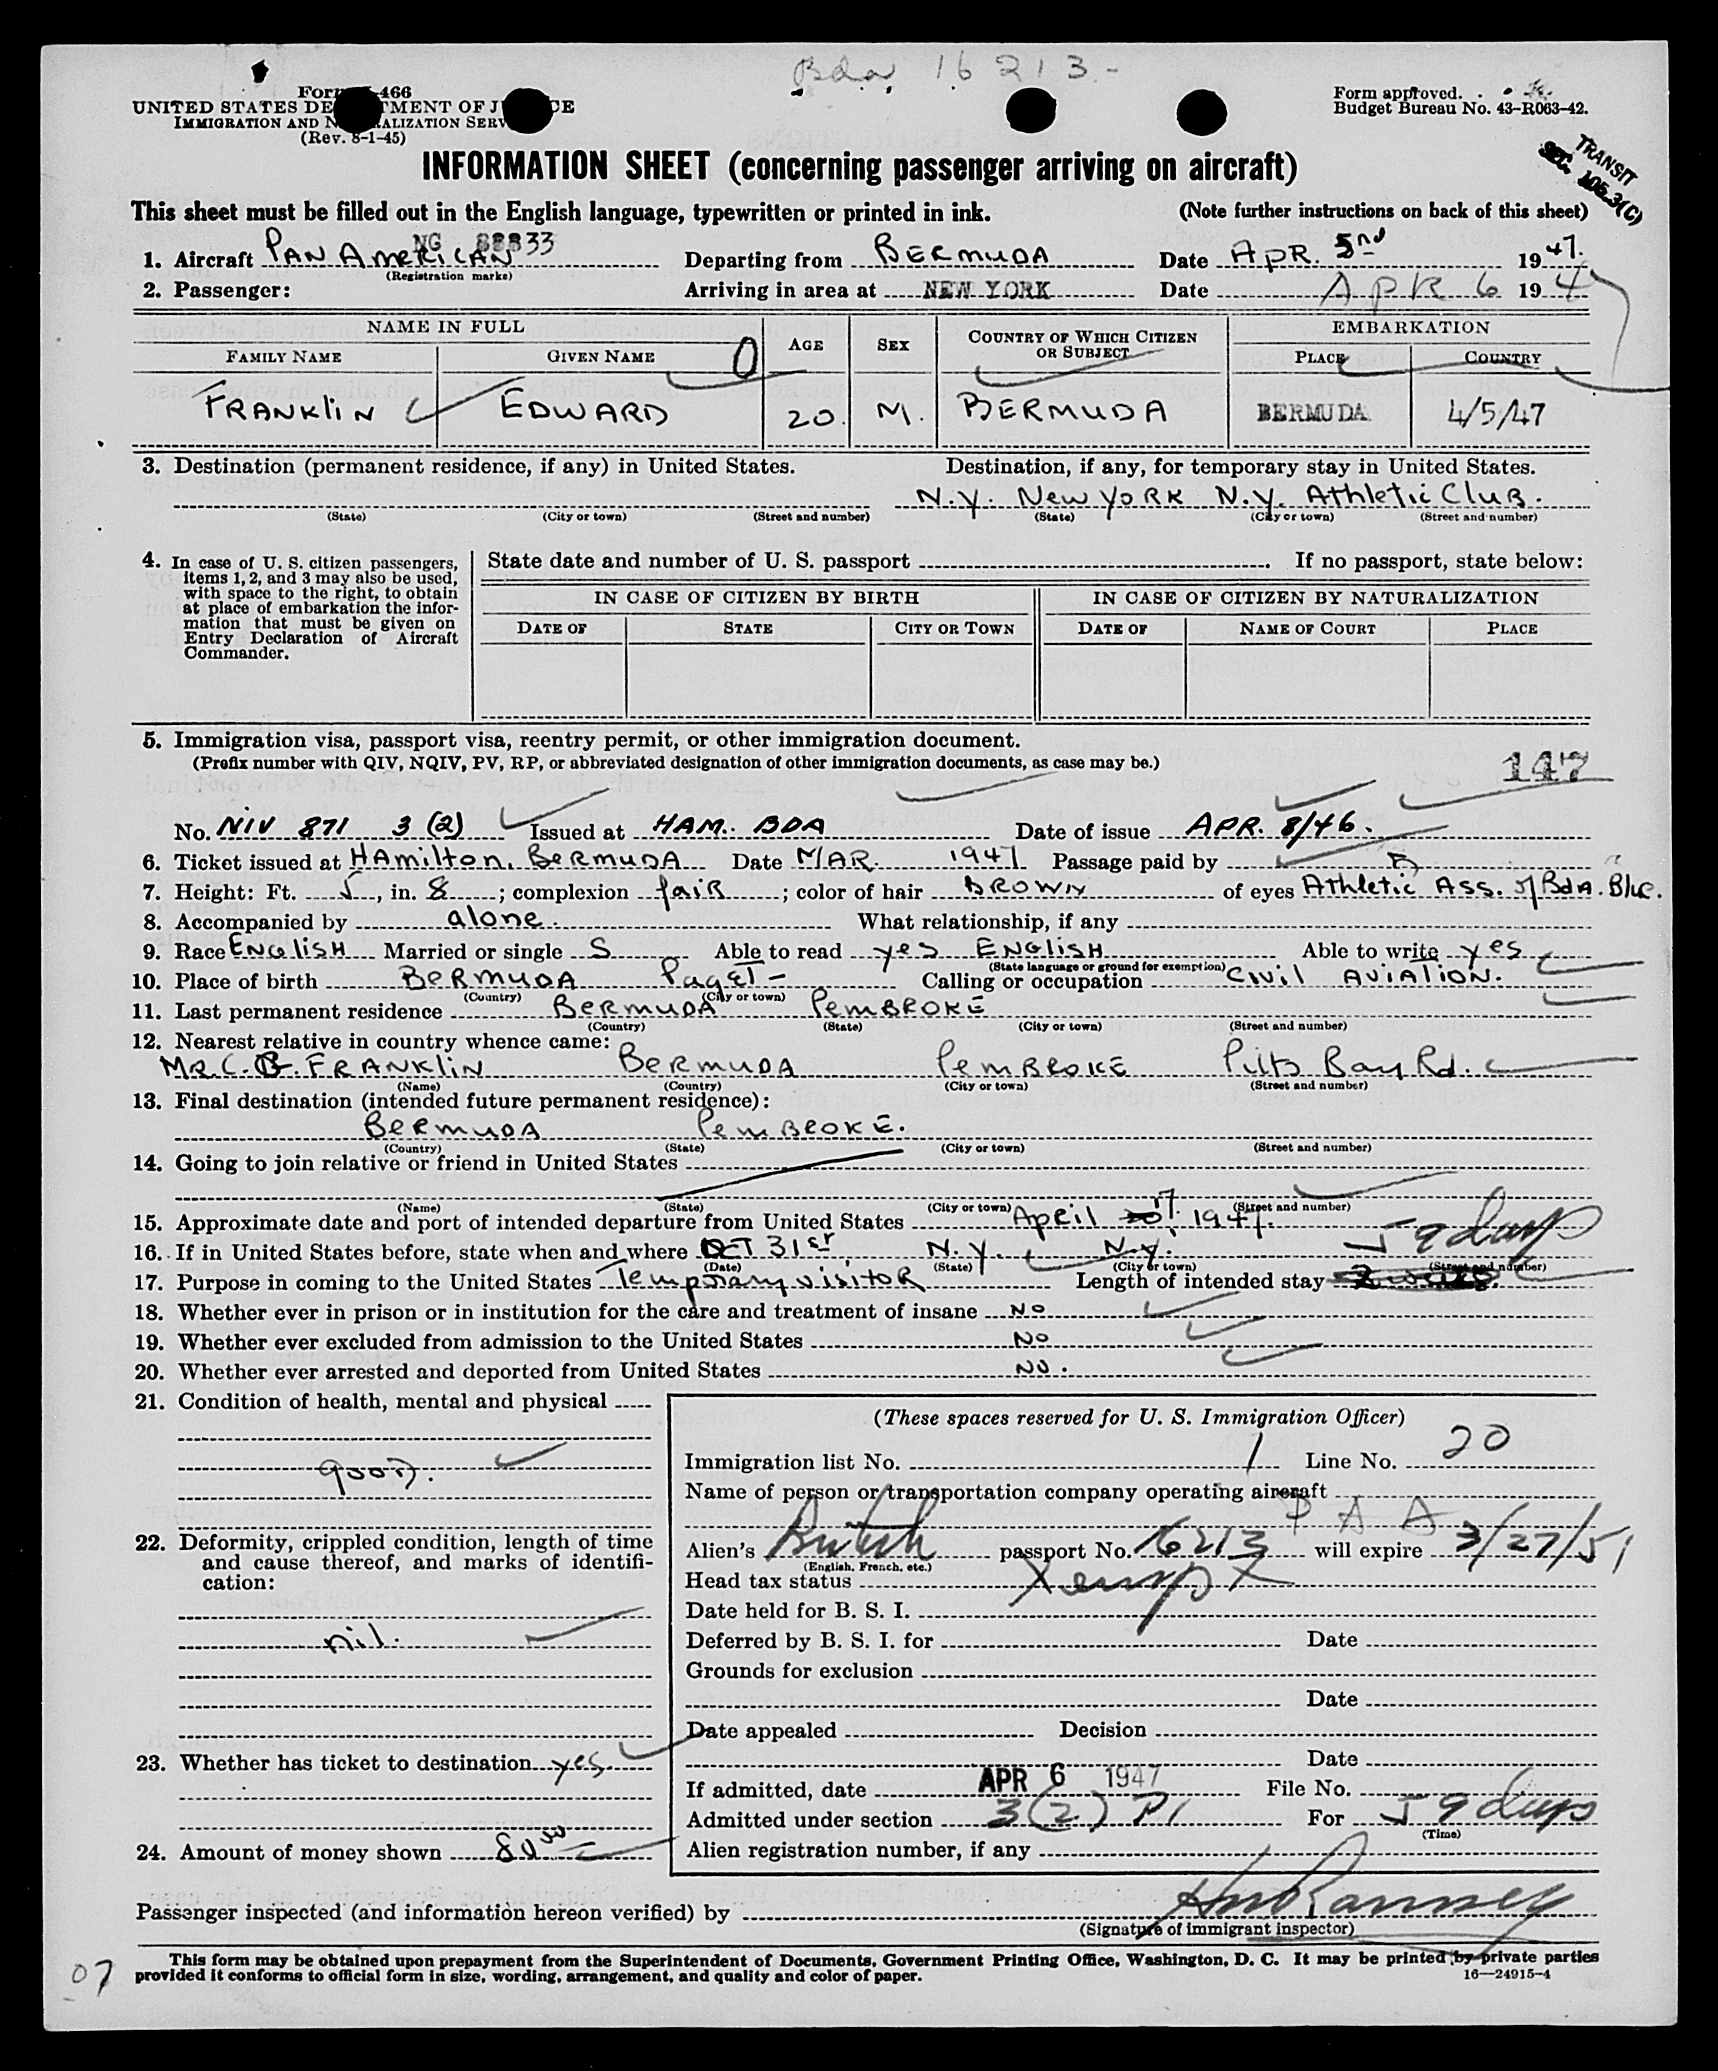 Bda 16213-
Form 466
UNITED STATES DE TMENT OF J CE
IMMIGRATION AND N ALIZATION SERV
(Rev. 8-1-45)
Form approved.
Budget Bureau No. 43-R063-42.
TRANSIT
SEC. 105.3(C)
INFORMATION SHEET (concerning passenger arriving on aircraft)
This sheet must be filled out in the English language, typewritten or printed in ink.
(Note further instructions on back of this sheet)
1. Aircraft PAN AMERICAN NC 88833 Departing from BERMUDA Date APR. 5nd 1947.
(Registration marks)
2. Passenger: Arriving in area at NEW YORK Date APR 6 194
NAME IN FULL AGE SEX COUNTRY OF WHICH CITIZEN OR SUBJECT EMBARKATION
FAMILY NAME GIVEN NAME 0 PLACE COUNTRY
FRANKlIN EDWARD 20. M. BERMUDA BERMUDA 4/5/47
3. Destination (permanent residence, if any) in United States. Destination, if any, for temporary stay in United States.
N.Y. New YORK N.Y. Athletic CluB.
(State) (City or town) (Street and number) (State) (City or town) (Street and number)
4. In case of U. S. citizen passengers, items 1, 2, and 3 may also be used, with space to the right, to obtain at place of embarkation the information that must be given on Entry Declaration of Aircraft Commander.
State date and number of U. S. passport If no passport, state below:
IN CASE OF CITIZEN BY BIRTH IN CASE OF CITIZEN BY NATURALIZATION
DATE OF STATE CITY OR TOWN DATE OF NAME OF COURT PLACE
5. Immigration visa, passport visa, reentry permit, or other immigration document.
(Prefix number with QIV, NQIV, PV, RP, or abbreviated designation of other immigration documents, as case may be.)
147
No. NIV 871 3 (2) Issued at HAM. BDA Date of issue APR. 8/46.
6. Ticket issued at HAmilton, BERMUDA Date MAR. 1947 Passage paid by
7. Height: Ft. 5, in. 8; complexion faiR; color of hair BROWN of eyes Athletic Ass. of BdA. Blue.
8. Accompanied by alone. What relationship, if any
9. Race ENGlisH Married or single S Able to read yes ENGlisH Able to write yes
(State language or ground for exemption)
10. Place of birth BERMUDA PageT- Calling or occupation CIVIL AVIATION.
(Country) (City or town)
11. Last permanent residence BERMUDA PEMBROKE
(Country) (State) (City or town) (Street and number)
12. Nearest relative in country whence came:
MR. C. G. FRANKlIN BERMUDA PEMBROKE Pitts Bay Rd.
(Name) (Country) (City or town) (Street and number)
13. Final destination (intended future permanent residence):
BERMUDA PEMBROKE.
(Country) (State) (City or town) (Street and number)
14. Going to join relative or friend in United States
(Name) (State) (City or town) (Street and number)
15. Approximate date and port of intended departure from United States April 17 1947. 59 days
16. If in United States before, state when and where OCT 31st N.Y. N.Y.
(Date) (State) (City or town) (Street and number)
17. Purpose in coming to the United States Temporary visitoR Length of intended stay
18. Whether ever in prison or in institution for the care and treatment of insane No
19. Whether ever excluded from admission to the United States No
20. Whether ever arrested and deported from United States NO.
21. Condition of health, mental and physical
good.
22. Deformity, crippled condition, length of time and cause thereof, and marks of identification:
nil.
23. Whether has ticket to destination yes.
24. Amount of money shown 80.00
(These spaces reserved for U. S. Immigration Officer)
Immigration list No. 1 Line No. 20
Name of person or transportation company operating aircraft
P A A
Alien's British passport No. 16213 will expire 3/27/51
(English, French, etc.)
Head tax status X empt X
Date held for B. S. I.
Deferred by B. S. I. for Date
Grounds for exclusion
Date
Date appealed Decision
Date
If admitted, date APR 6 1947 File No.
Admitted under section 3(2) P1 For 59 days
(Time)
Alien registration number, if any
Passenger inspected (and information hereon verified) by
(Signature of immigrant inspector)
This form may be obtained upon prepayment from the Superintendent of Documents, Government Printing Office, Washington, D. C. It may be printed by private parties
provided it conforms to official form in size, wording, arrangement, and quality and color of paper.
16—24915-4
07